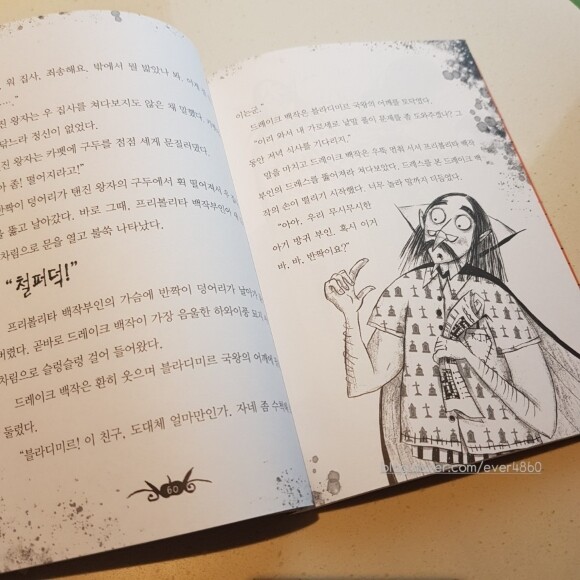 워 집사. 죄송해요. 밖에서 뭘 밟았나 봐.
진 왕자는 우 집사를 쳐다보지도 않은 채 말했다.
닦느라 정신이 없었다.
진 왕자는 카펫에 구두를 점점 세게 문질러댔다.
좀! 떨어지라고!"
반짝이 덩어리가 탠진 왕자의 구두에서 휙 떨어져서
뚫고 날아갔다. 바로 그때, 프리볼리타 백작부인이
차림으로 문을 열고 불쑥 나타났다.
"철퍼덕!"
프리볼리타 백작부인의 가슴에 반짝이 덩어리가
버렸다. 곧바로 드레이크 백작이 가장 음울한 하와이풍
차림으로 슬렁슬렁 걸어 들어왔다.
드레이크 백작은 환히 웃으며 블라디미르 국왕의 어깨에
둘렀다.
"블라디미르! 이 친구, 도대체 얼마만인가. 자네 좀
60
이는군."
드레이크 백작은 블라디미르 국왕의 어깨를 토닥였다.
"이리 와서 내 가로세로 낱말 풀이 문제를 좀 도와주겠나? 그
동안 저녁 식사를 기다리지."
말을 마치고 드레이크 백작은 우뚝 멈춰 서서 프리볼리타 백작
부인의 드레스를 뚫어져라 쳐다보았다. 드레스를 본 드레이크 백
작의 손이 떨리기 시작했다. 너무 놀라 말까지 더듬었다.
"아아, 우리 무시무시한
아기 방귀 부인, 혹시 이거
바, 바, 반짝이요?"
blog.naver.com/ever4860